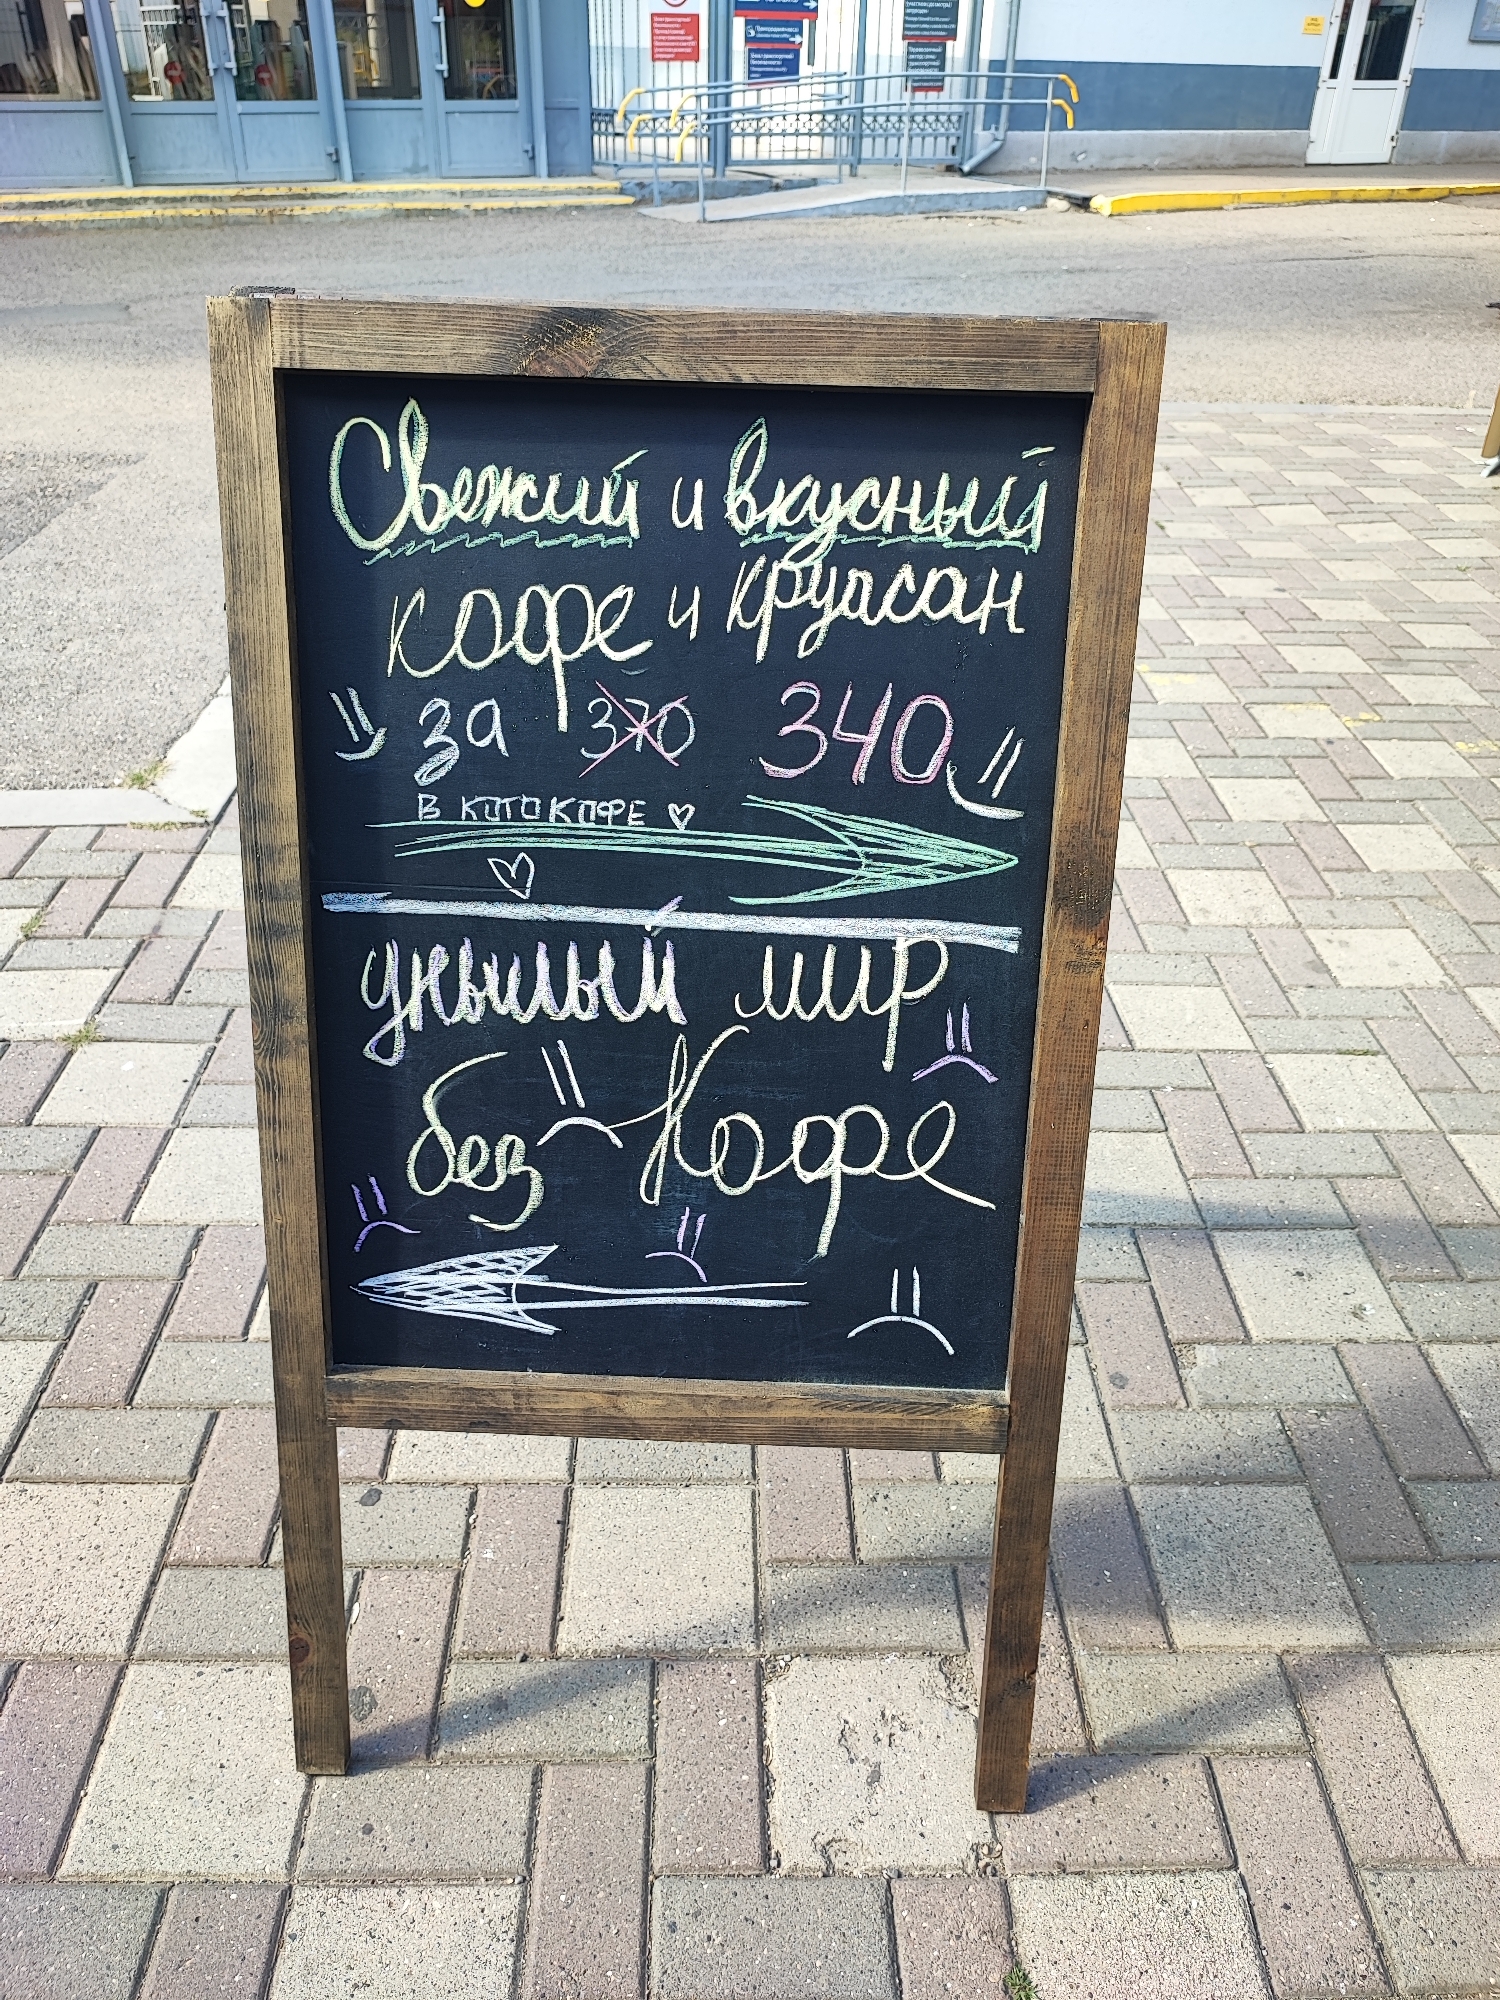 Свежий и вкусный
кофе и круасан
за 370 340
В КОТОКОФЕ
унылый мир
без Кофе